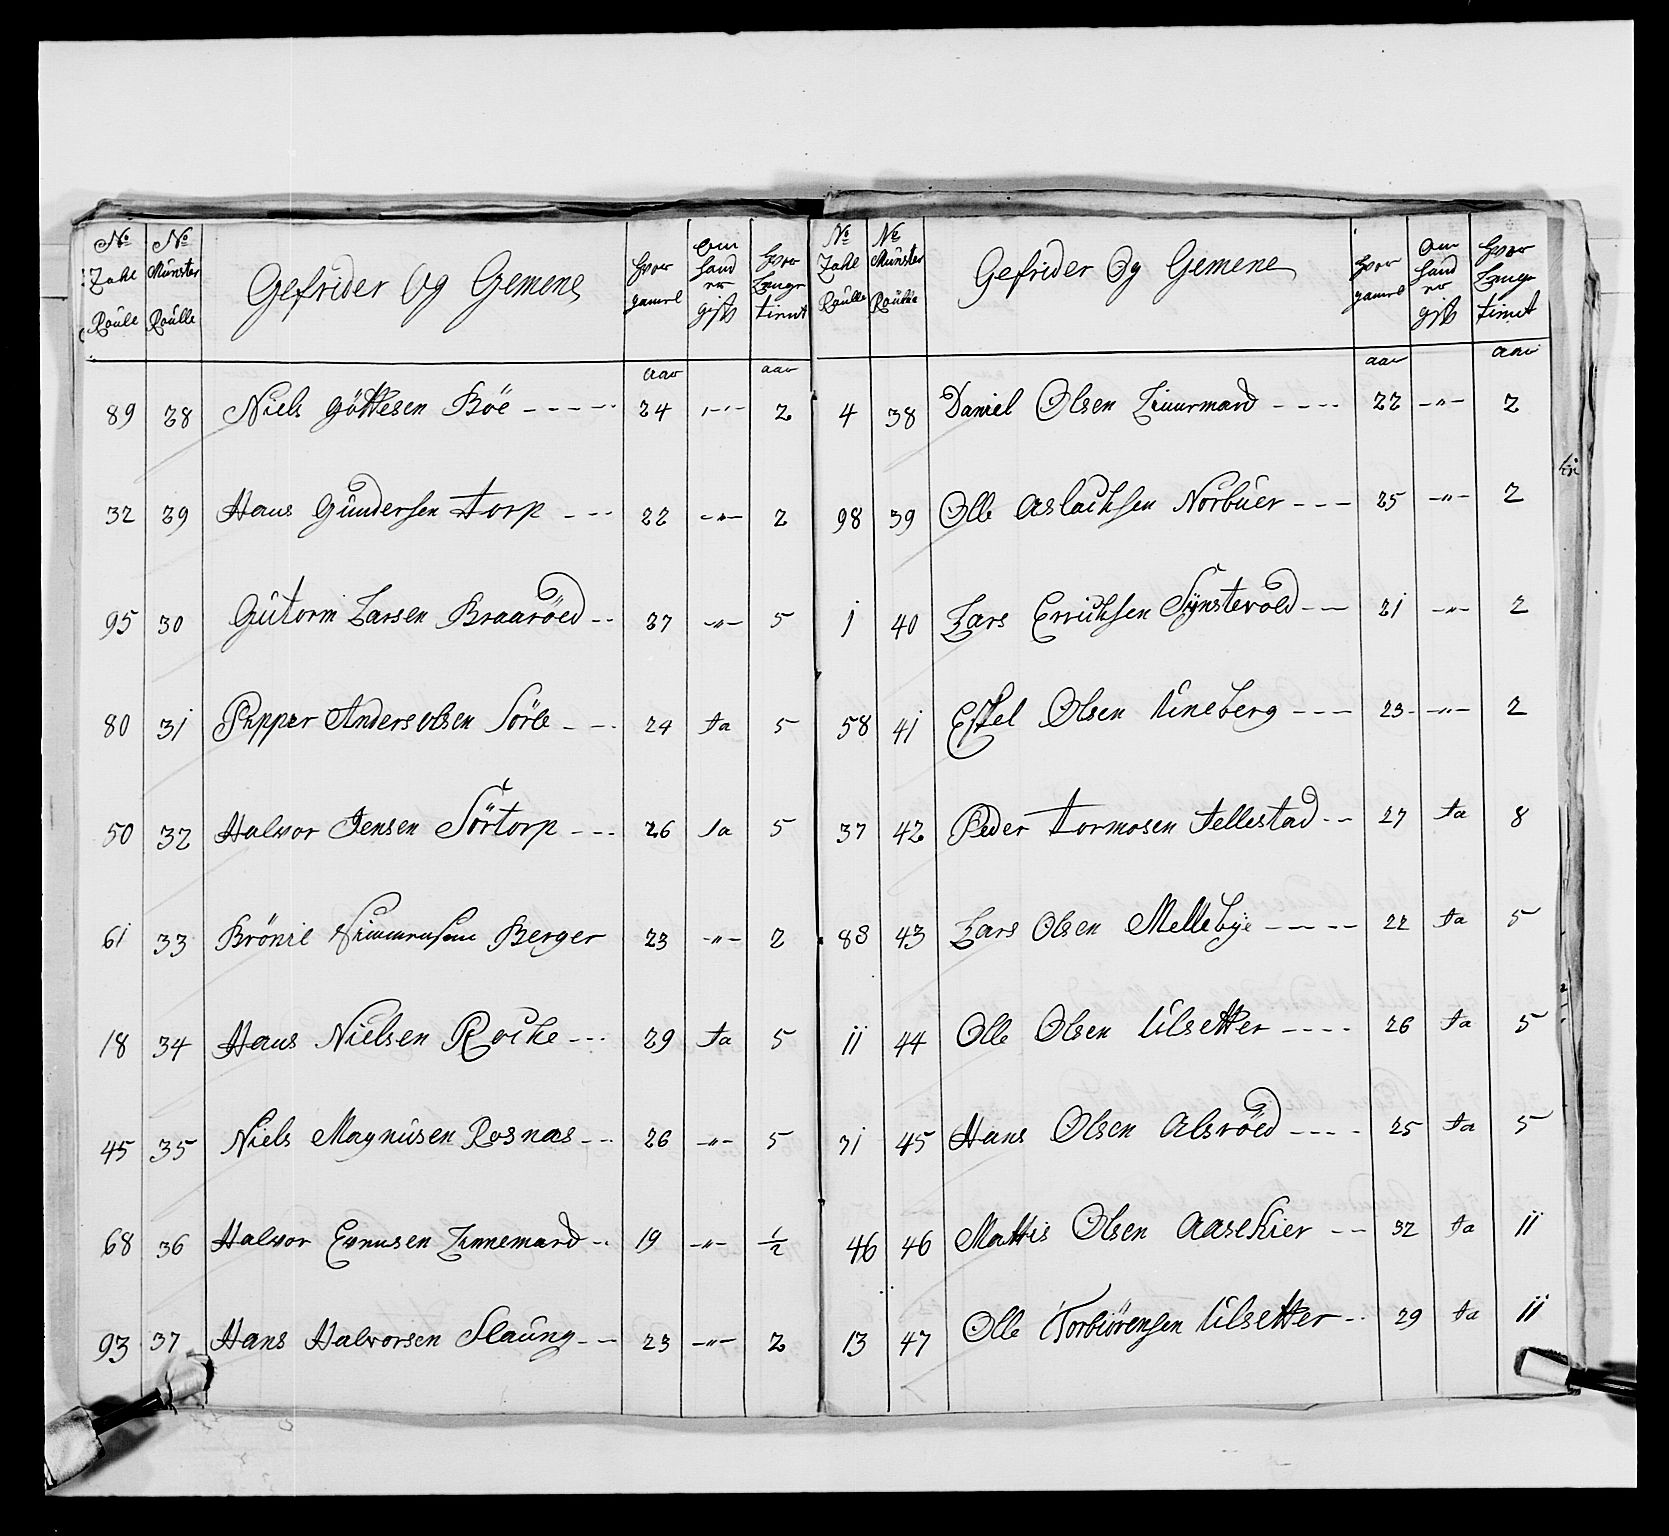 No Zahl Roule | No Münster Roulle | Gefrider Og Gemene | Hvor gamel | Om hand er gift | Hvor Lenge tient
aar | aar
89 | 28 | Niels Göttesen Böe | 24 | -"- | 2
32 | 29 | Hans Gündersen Torp | 22 | -"- | 2
95 | 30 | Gütorm Larsen Braaröed | 27 | -"- | 5
80 | 31 | Pepper Anders olsen Sörbe | 24 | Ja | 5
50 | 32 | Halvor Jensen Sörtorp | 26 | Ja | 5
61 | 33 | Brönil Berger | 23 | -"- | 2
18 | 34 | Hans Nielsen Rocke | 29 | Ja | 5
45 | 35 | Niels Magnüsen Rosnæs | 26 | -"- | 5
68 | 36 | Halvor Evensen Linnemand | 19 | -"- | 1/2
93 | 37 | Hans Halvorsen Slaüng | 23 | -"- | 2
No Zahl Roulle | No Münster Roulle | Gefrider Og Gemene | Hvor gamel | Om Hand er gift | Hvor Lenge tient
aar | aar
4 | 38 | Daniel Olsen | 22 | -"- | 2
98 | 39 | Olle Aslachsen Norbüer | 25 | -"- | 2
1 | 40 | Lars Errichsen Synstevold | 21 | -"- | 2
58 | 41 | Eskel Olsen Vineberg | 23 | -"- | 2
37 | 42 | Peder Tormosen Tellestad | 27 | Ja | 8
88 | 43 | Lars Olsen Mellebye | 22 | Ja | 5
11 | 44 | Olle Olsen Ulsetter | 26 | Ja | 5
31 | 45 | Hans Olsen Alsröed | 25 | Ja | 5
46 | 46 | Mattis Olsen Aasekier | 32 | Ja | 11
13 | 47 | Olle Torbiörensen Ulsetter | 29 | Ja | 11